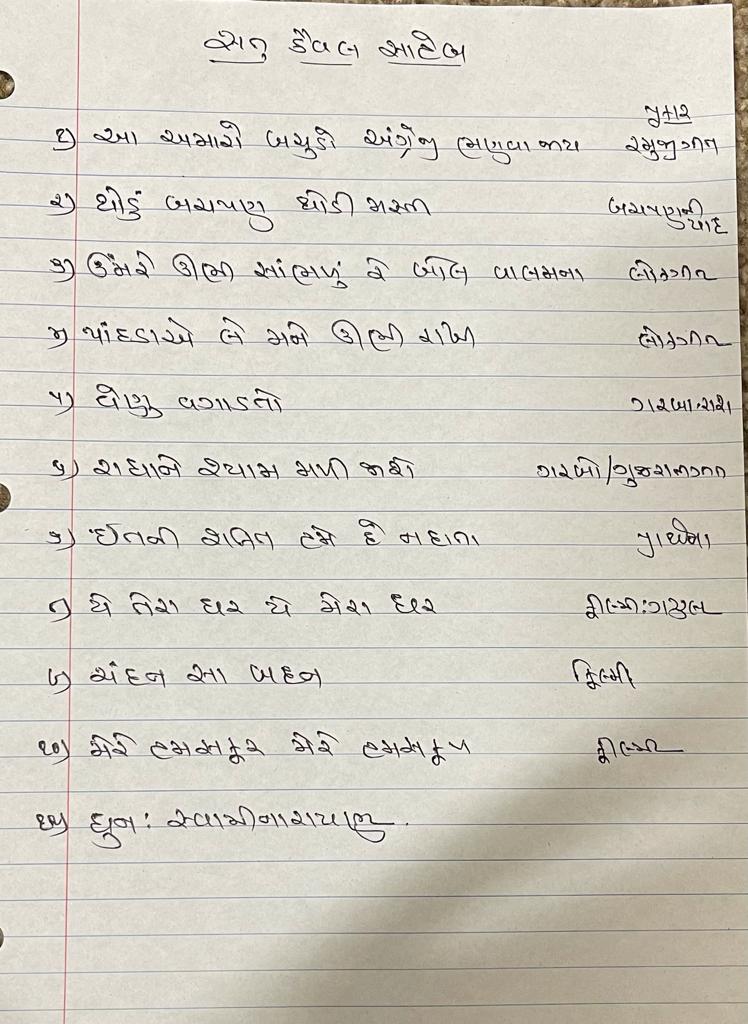 સત્ કૈવલ સાહેબ
પ્રકાર
૧) આ અમારો બચુડો અંગ્રેજી ભણવા જાય રમુજીગીત
૨) થોડું બચપણ થોડી મસ્તી બચપણની યાદ
૩) ઉંમરે ઊભી સાંભળું રે બોલ વાલમના લોકગીત
૪) પાંદડાએ લે મને ઊભી રાખી લોકગીત
૫) વેણુ વગાડતો ગરબા-રાસ
૬) રાધાને શ્યામ મળી જાશે ગરબો/ગુજરાતીગીત
૭) ઈતની શક્તિ હમે દે ન દાતા પ્રાર્થના
૮) યે તેરા ઘર યે મેરા ઘર ફીલ્મી:ગઝલ
૯) ચંદન સા બદન ફિલ્મી
૧૦) મેરે હમસફર મેરે હમસફર ફીલ્મી
૧૧) ધુન: સ્વામીનારાયણ.